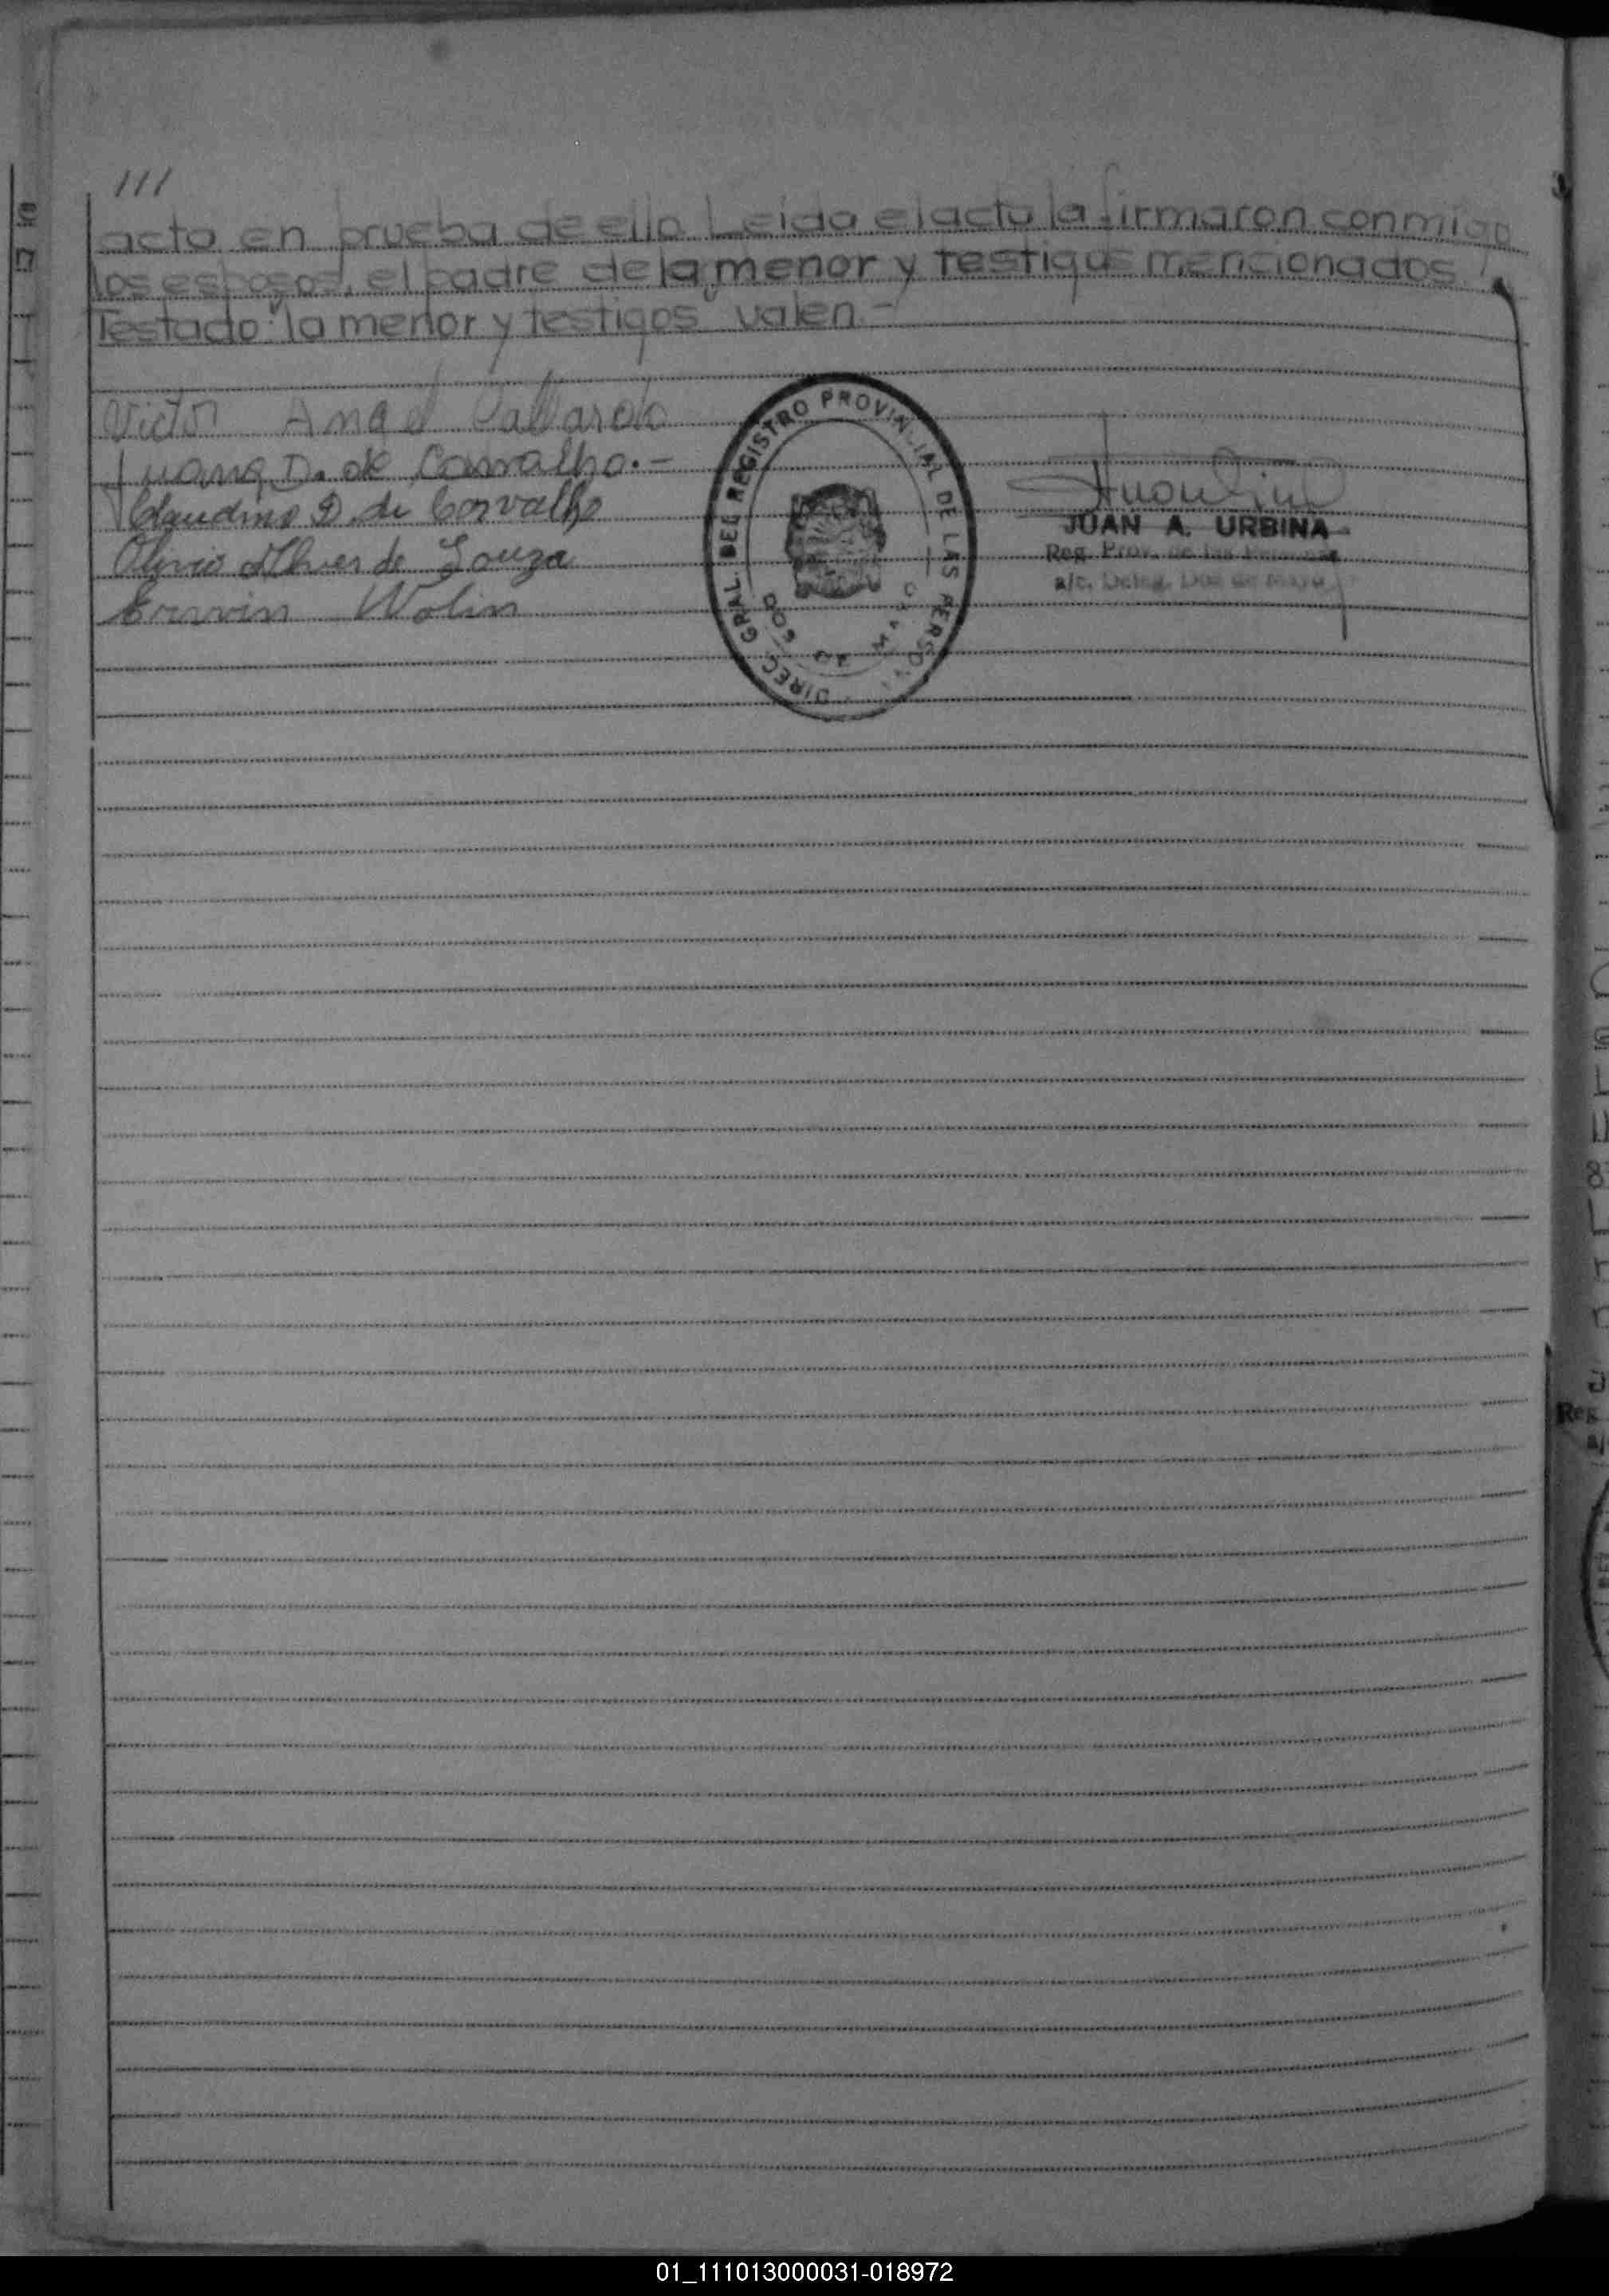 ///
acto en prueba de ello. Leida el acta la firmaron conmigo
los esposos, el padre de la menor y testigos mencionados.
Testado: "la menor y testigos" valen.-
Victor Angel Gallardo
Juana D. de Carvalho.-
Claudino D. de Carvalho
Olivio Alves de Souza
Erwin Wolin
DIREC. GRAL. DEL REGISTRO PROVINCIAL DE LAS PERSONAS
DE MAYO
JUAN A. URBINA
Reg. Prov. de las Personas
a/c. Deleg. Dos de Mayo
Reg.
01_111013000031-018972